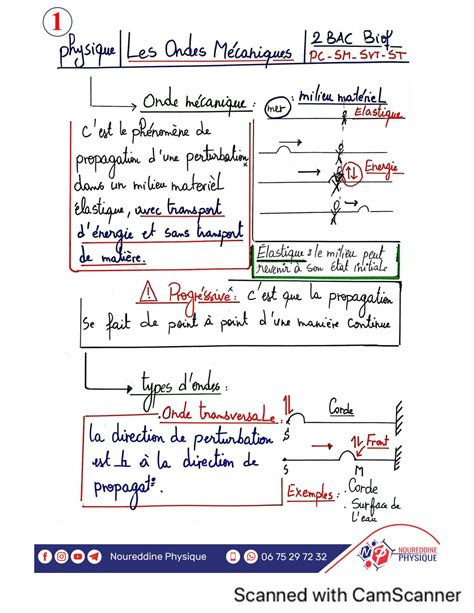 1
physique | Les Ondes Mécaniques | 2 BAC Biof
PC-SM-SVT-ST
Onde mécanique :
c'est le phénomène de
propagation d'une perturbation
dans un milieu materiel
élastique, avec transport
d'énergie et sans transport
de matière.
mer
milieu matériel
Elastique
Energie
Élastique : le milieu peut
revenir à son état initiale
Progréssive : c'est que la propagation
se fait de point à point d'une manière continue
types d'ondes :
Onde transversale :
la direction de perturbation
est ⊥ à la direction de
propagat°.
Corde
S
Front
S
M
Exemples : . Corde
. Surface de
l'eau
Noureddine Physique
06 75 29 72 32
NP
NOUREDDINE
PHYSIQUE
Scanned with CamScanner